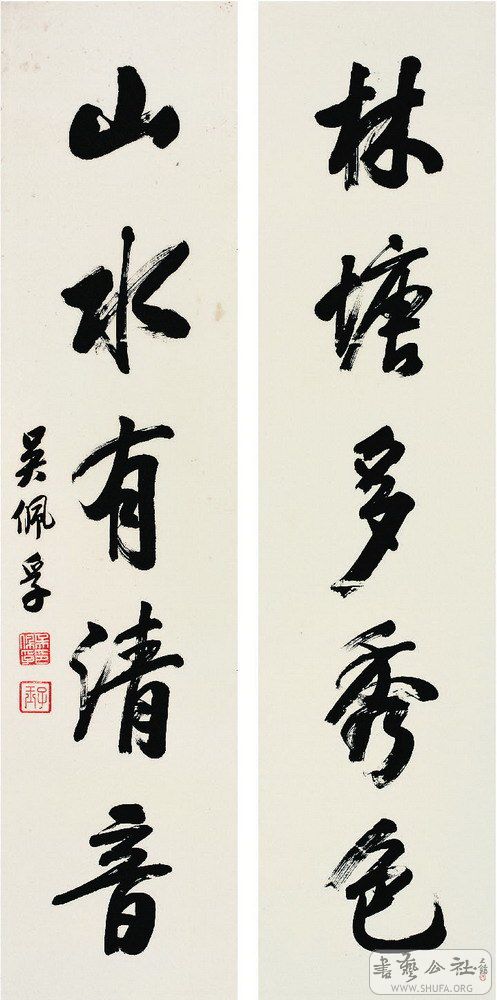 林塘多秀色
山水有清音
吴佩孚
書藝公社
WWW.SHUFA.ORG